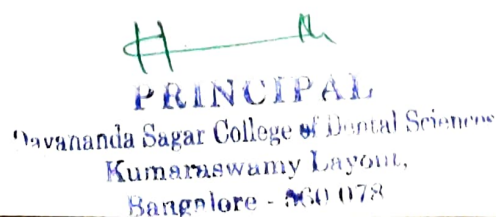 PRINCIPAL
Dayananda Sagar College of Dental Sciences
Kumaraswamy Layout,
Bangalore - 560 078